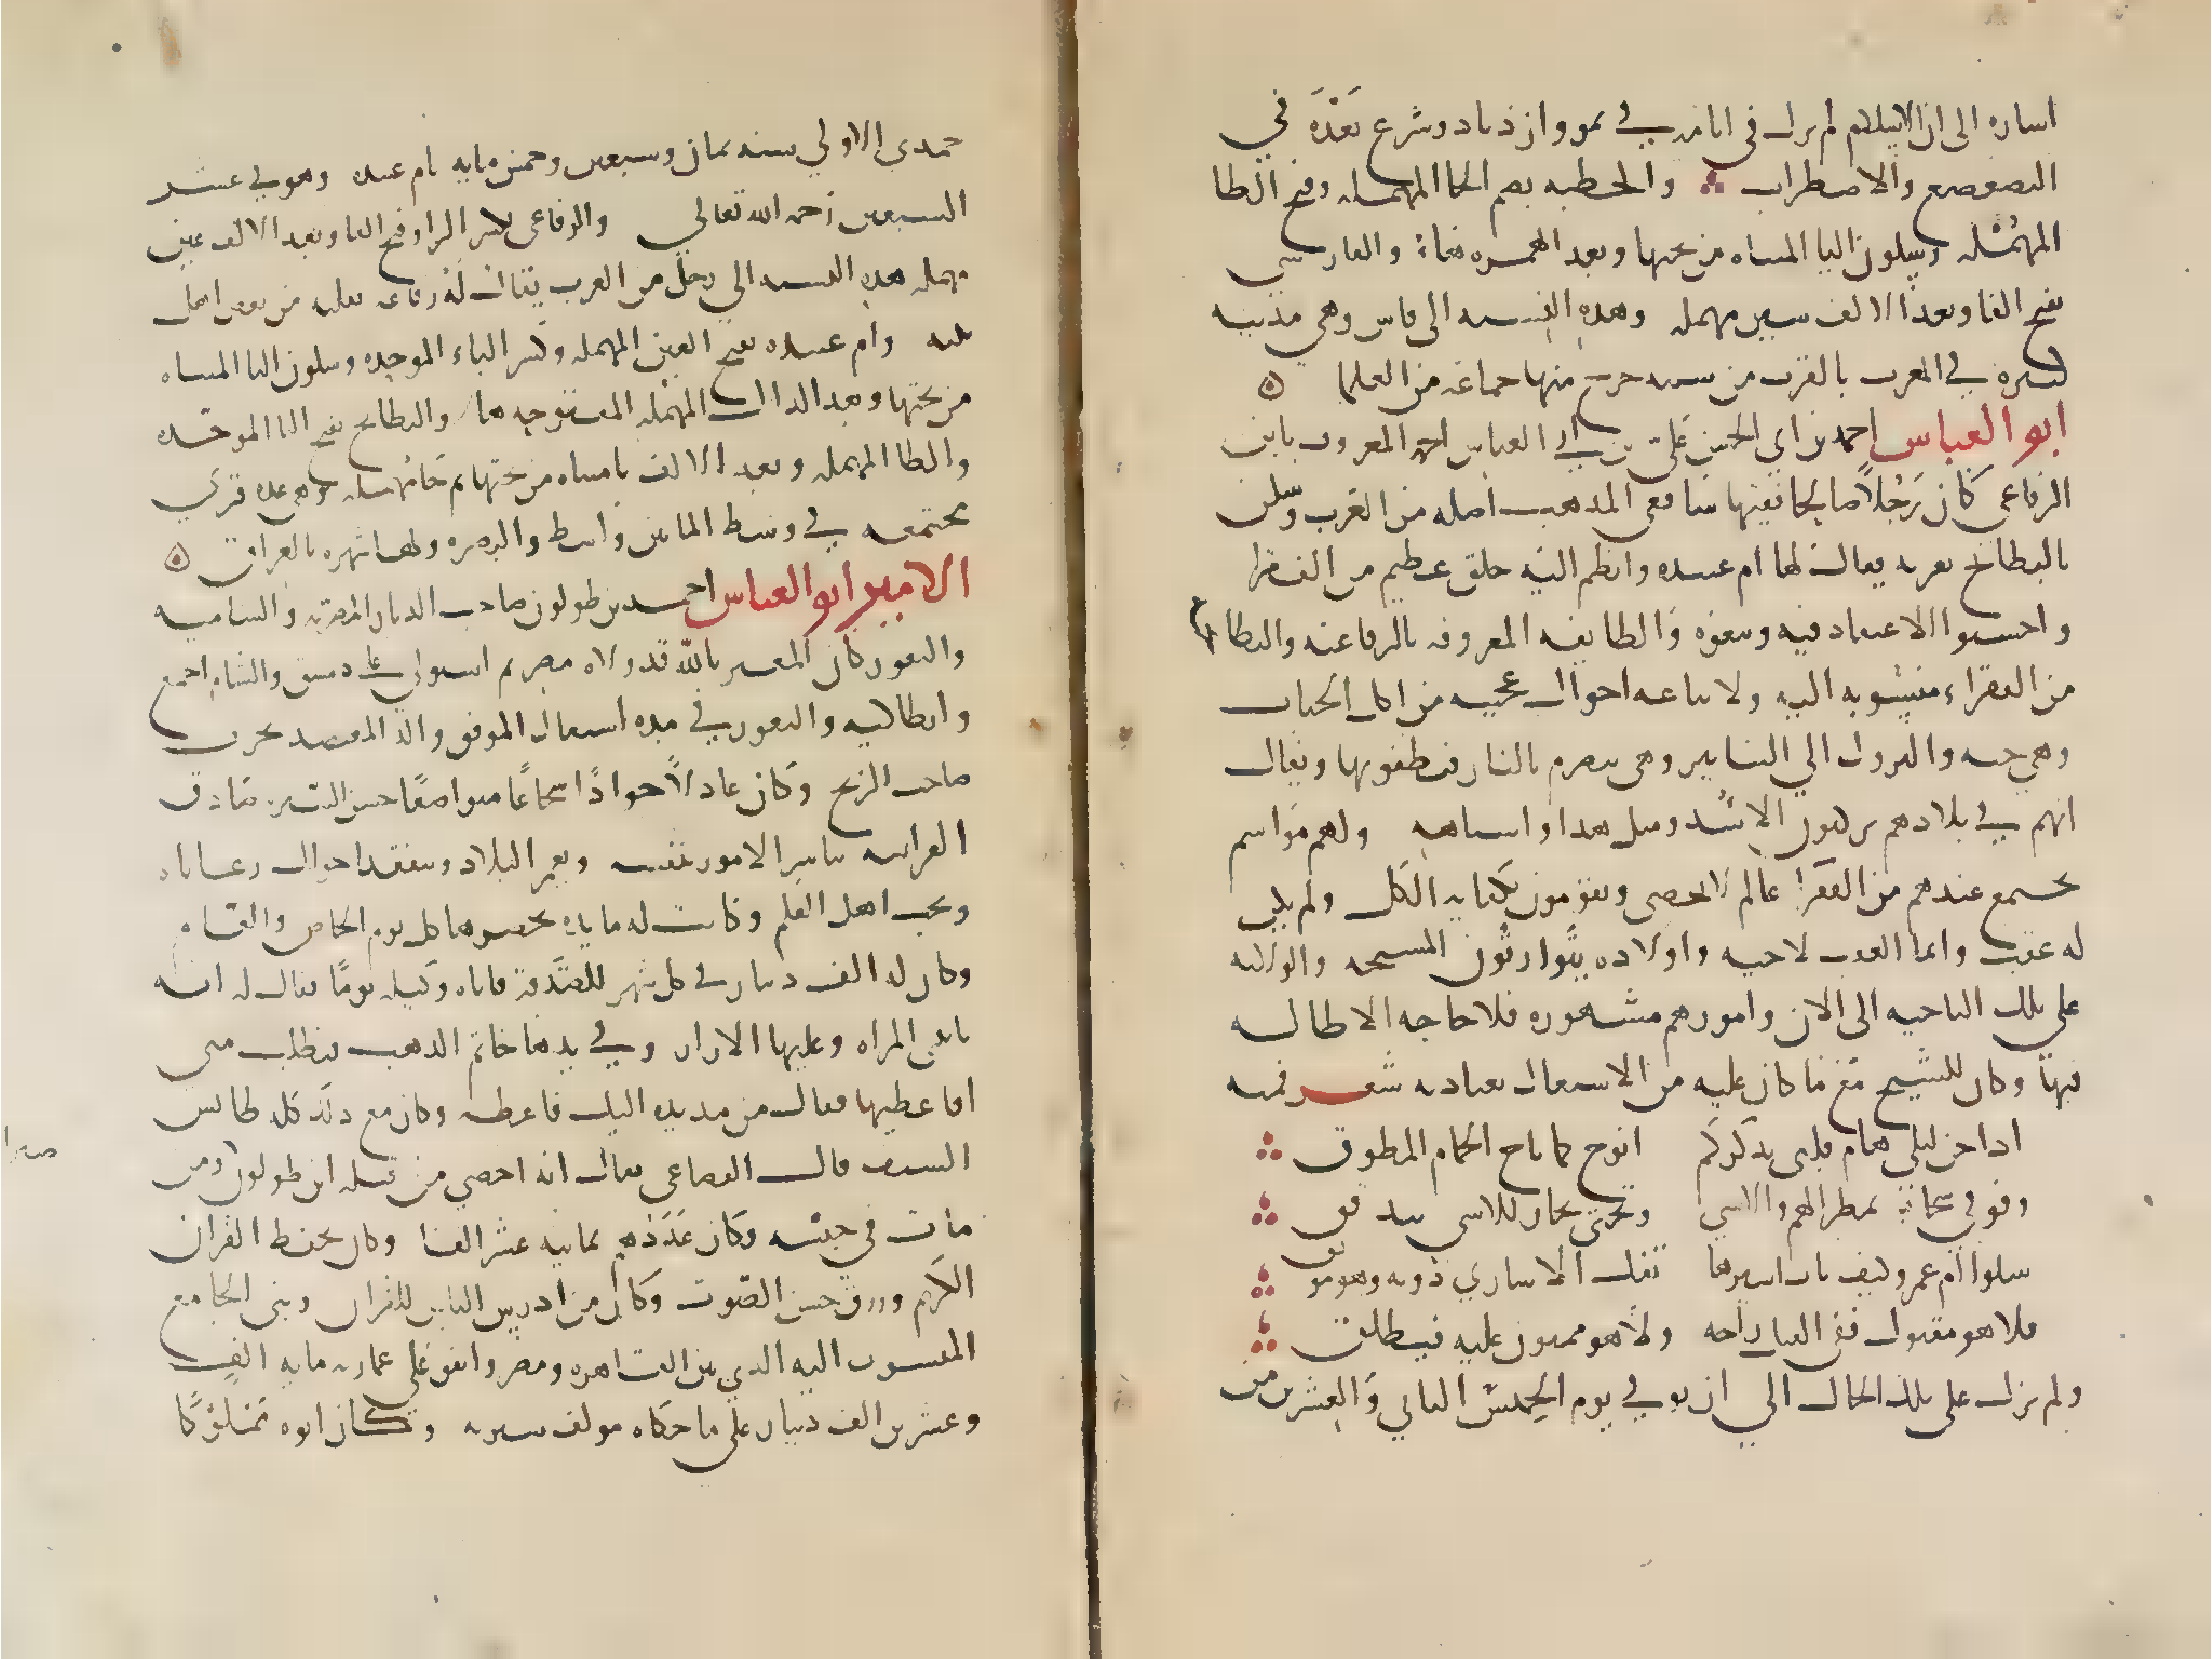 اشاره الى ان الاسلام لم يزل في ايامه في نمو وازدياد وشرع بعده في
التضعضع والاضطراب والحطيه بضم الحا المهمله وفتح الطا
المهمله وسكون اليا المثناه من تحتها وبعد الهمزه هاء والفارسي
بفتح الفا وبعد الالف سين مهمله وهذه النسبه الى فاس وهي مدينه
كبيره في المغرب بالقرب من سبته خرج منها جماعه من العلما
ابو العباس احمد بن ابي الحسن علي بن ابي العباس احمد المعروف بابن
الرفاعي كان رجلاً صالحا فقيها شافعي المذهب اصله من العرب وسكن
بالبطائح بقريه يقال لها ام عبيده وانظم اليه خلق عظيم من الفقرا
واحسنوا الاعتقاد فيه وتبعوه والطايفه المعروفه بالرفاعيه والبطايحيه
من الفقراء منسوبه اليه ولاتباعه احوال عجيبه من اكل الحيات
وهي حيه والنزول الي التنانير وهي تتضرم بالنار فيطفونها ويقال
انهم في بلادهم يركبون الاسد ومثل هذا واشباهه ولهم مواسم
يجتمع عندهم من الفقرا عالم لا يحصى ويقومون بكفايه الكل ولم يكن
له عقب وانما العقب لاخيه واولاده يتوارثون المشيخه والولايه
على تلك الناحيه الى الان وامورهم مشهوره فلا حاجه الا طاله
فيها وكان للشيخ مع ما كان عليه من الاشتغال بعبادته شعر فمنه
اذا جن ليلي هام قلبي بذكركم انوح كما ناح الحمام المطوق
وفوقي سحاب يمطر الهم والاسي وتحتي بحار للاسي تتدفق
سلوا ام عمرو كيف بات اسيرها تفك الاسارى دونه وهو موثق
فلا هو مقتول ففي القتل راحه ولا هو ممنون عليه فيطلق
ولم يزل على تلك الحال الي ان توفي يوم الخميس الثاني والعشرين من
جمدي الاولي سنه ثمان وسبعين وخمس مايه بام عبيده وهو في عشر
السبعين رحمه الله تعالي والرفاعي بكسر الرا وفتح الفا وبعد الالف عين
مهمله هذه النسبه الي رجل من العرب يقال له رفاعه نقلته من بعض اهل
بيته وام عبيده بفتح العين المهمله وكسر الباء الموحده وسكون اليا المثناه
من تحتها وبعد الدال المهمله المفتوحه ها والبطائح بفتح البا الموحده
والطا المهمله وبعد الالف يا مثناه من تحتها ثم حا مهمله وهي عده قرى
مجتمعه في وسط الما بين واسط والبصره ولها شهره بالعراق
الامير ابو العباس احمد بن طولون صاحب الديار المصريه والشاميه
والثغور كان المعتز بالله قد ولاه مصر ثم استولي على دمشق والشام اجمع
وانطاكيه والثغور في مده اشتغال الموفق والد المعتضد بحرب
صاحب الزنج وكان عادلاً جواداً شجاعاً متواضعاً حسن السيره صادق
الفراسه يباشر الامور بنفسه ويعمر البلاد ويتفقد احوال رعاياه
ويحب اهل العلم وكانت له مايده يحضرها كل يوم الخاص والعام
وكان له الف دينار في كل شهر للصدقه فاتاه وكيله يوماً فقال له انه
ياتيني المراه وعليها الازار وفي يدها خاتم الذهب فتطلب مني
افاعطيها فقال من مد يده اليك فاعطه وكان مع ذلك كله طايش
السيف قال القضاعي يقال انه احصي من قتله ابن طولون ومن
مات في حبسه وكان عددهم ثمانيه عشر الفا وكان يحفظ القران
الكريم ورزق حسن الصوت وكان من ادرس الناس للقران وبنى الجامع
المنسوب اليه الذي بين القاهره ومصر وانفق على عمارته مايه الف
وعشرين الف دينار على ما حكاه مولف سيرته وكان ابوه مملوكا